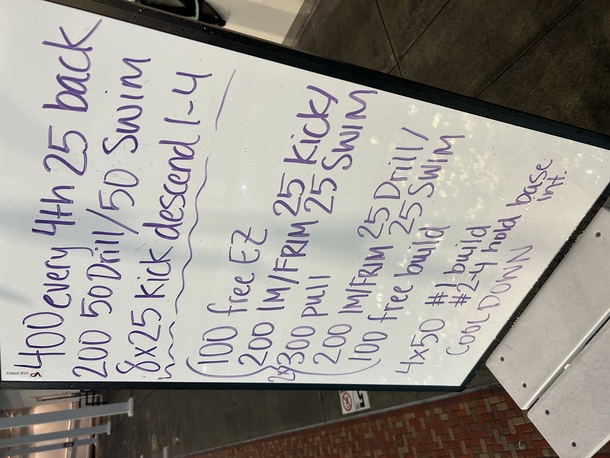 400 every 4th 25 back
200 50 Drill/50 SWIM
8x25 kick descend 1-4
100 free EZ
200 IM/FRIM 25 kick/
25 SWIM
2x 300 pull
200 IM/FRIM 25 Drill/
25 SWIM
100 free build
4x50 #1 build
#2-4 hold base
int.
COOL DOWN